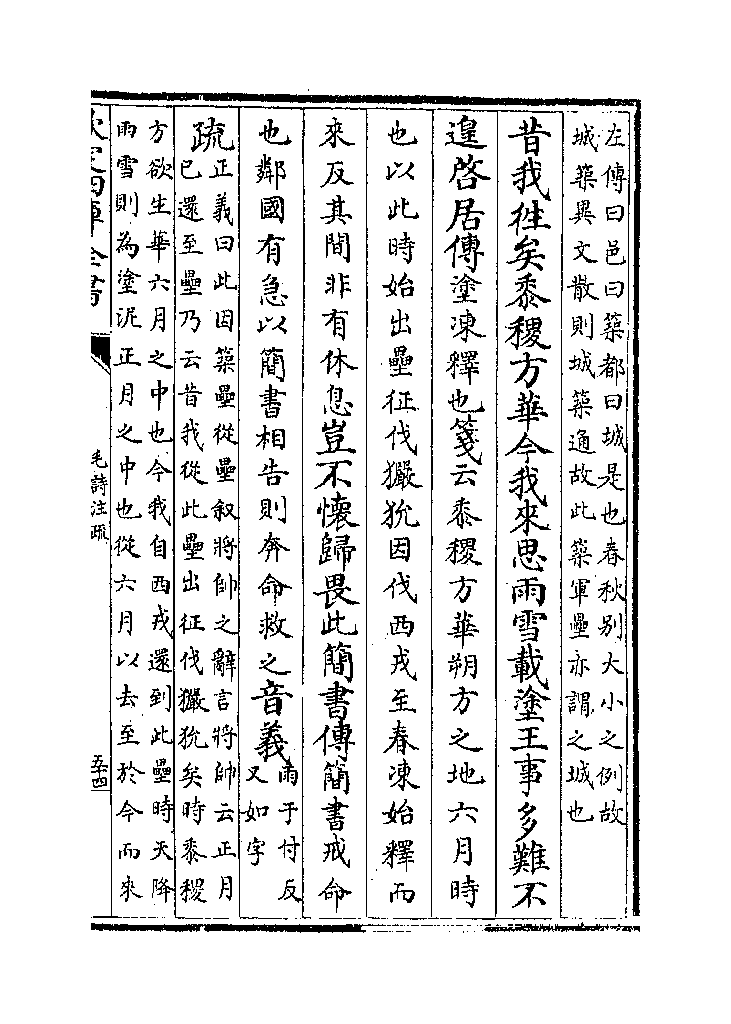 左傳曰邑曰築都曰城是也春秋别大小之例故
城築異文散則城築通故此築軍壘亦謂之城也
昔我徃矣黍稷方華今我來思雨雪載塗王事多難不
遑啓居傳塗凍釋也箋云黍稷方華朔方之地六月時
也以此時始出壘征伐玁狁因伐西戎至春凍始釋而
來反其間非有休息豈不懷歸畏此簡書傳簡書戒命
也鄰國有急以簡書相告則奔命救之音義
雨于付反
又如字
疏
正義曰此因築壘從壘叙將帥之辭言將帥云正月
已還至壘乃云昔我從此壘出征伐玁狁矣時黍稷
方欲生華六月之中也今我自西戎還到此壘時天降
雨雪則為塗泥正月之中也從六月以去至於今而來
欽定四庫全書
毛詩注疏
五十四